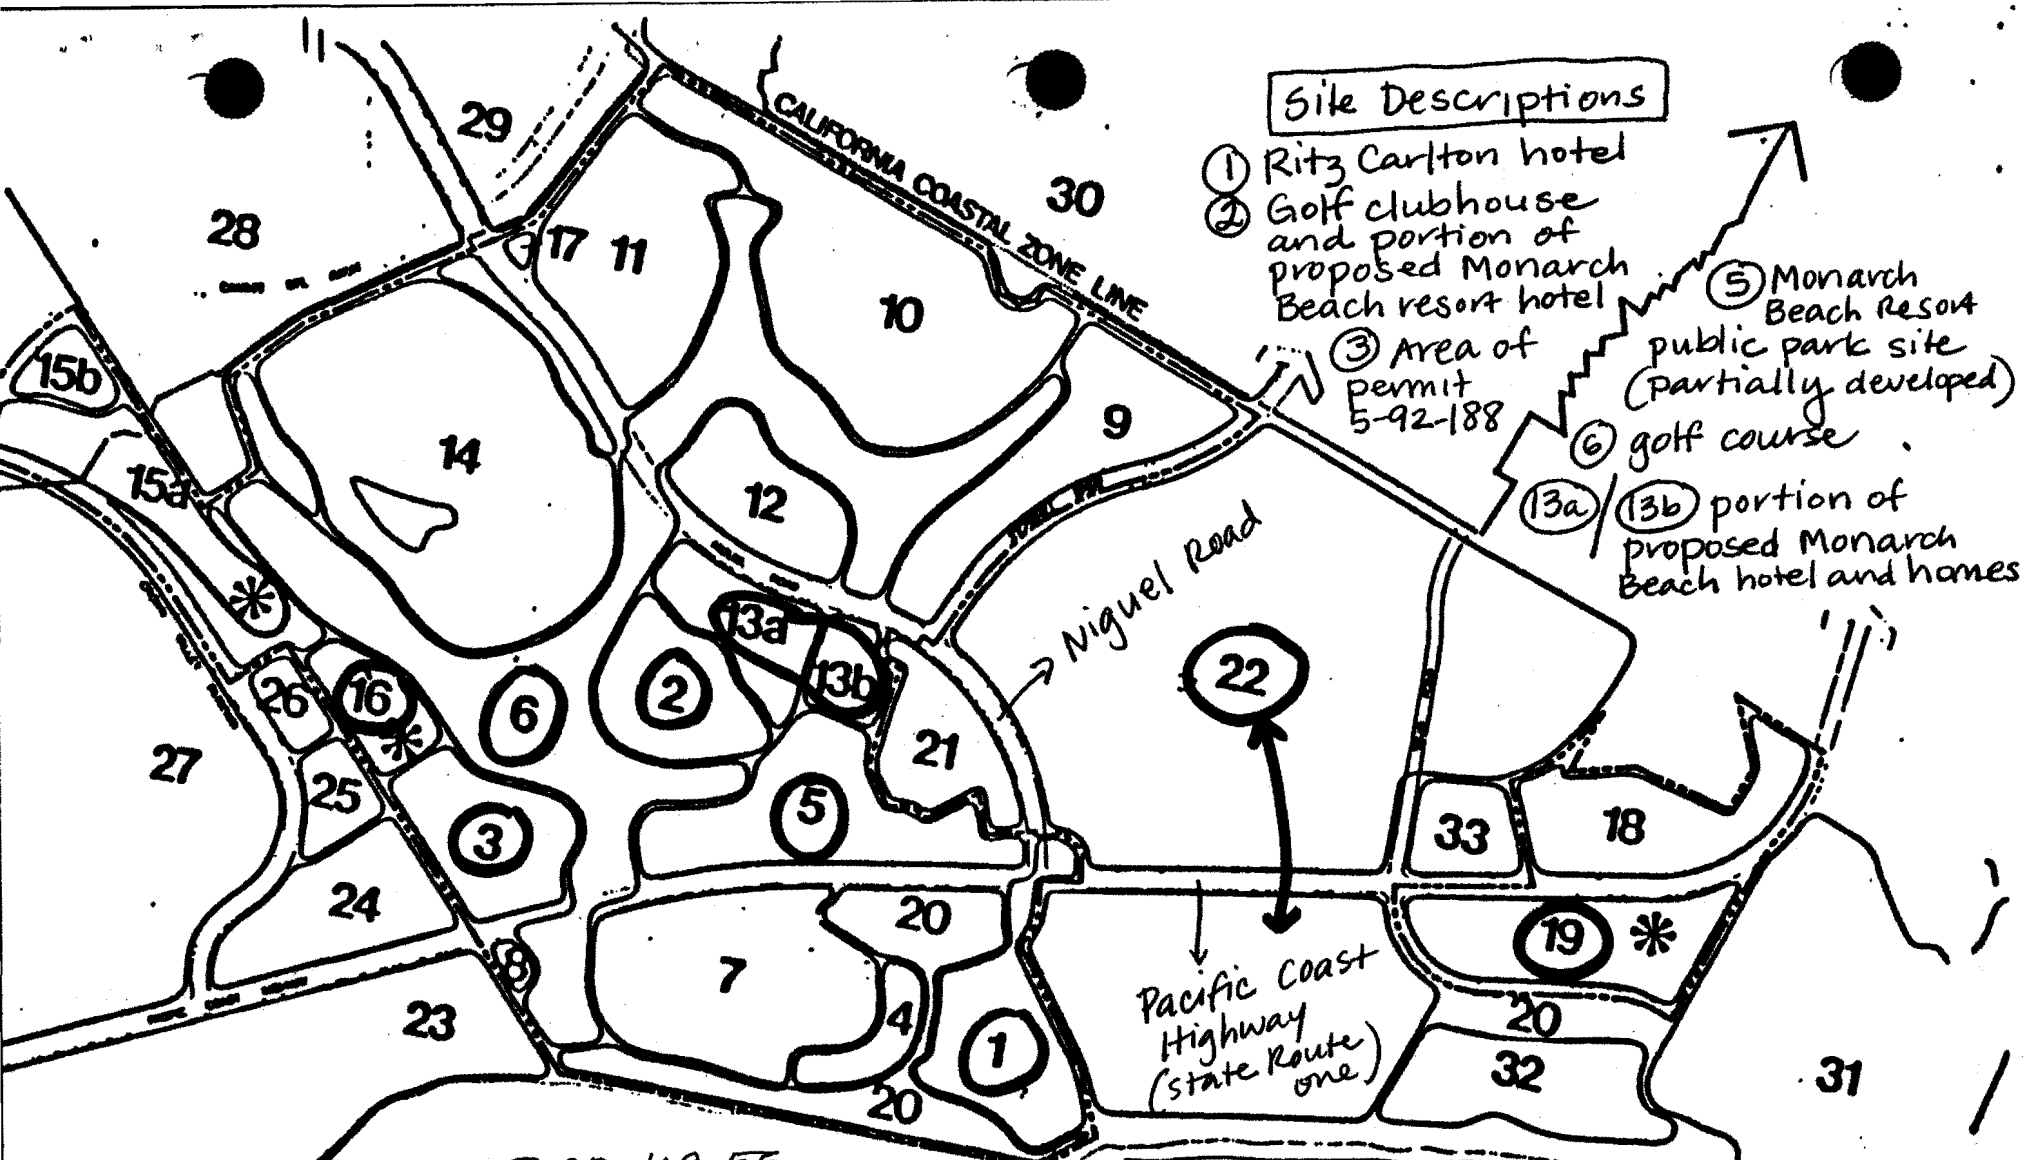 Site Descriptions
① Ritz Carlton hotel
② Golf clubhouse
and portion of
proposed Monarch
Beach resort hotel
③ Area of
permit
5-92-188
⑤ Monarch
Beach Resort
public park site
(partially developed)
⑥ golf course
13a / 13b portion of
proposed Monarch
Beach hotel and homes
CALIFORNIA COASTAL ZONE LINE
29
30
28
17
11
10
15b
9
14
15a
12
Niguel Road
13a
13b
22
26
16
6
2
21
27
25
5
3
33
18
24
20
19
8
7
Pacific Coast
Highway
(state Route
one)
23
4
1
20
32
31
20